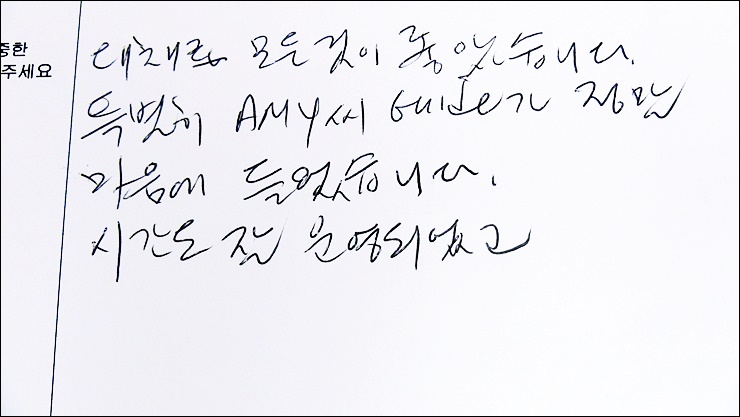 중한
주세요
대체로 모든것이 좋았습니다.
특별히 AMY씨 Guide가 정말
마음에 들었습니다.
시간도 잘 운영되었고